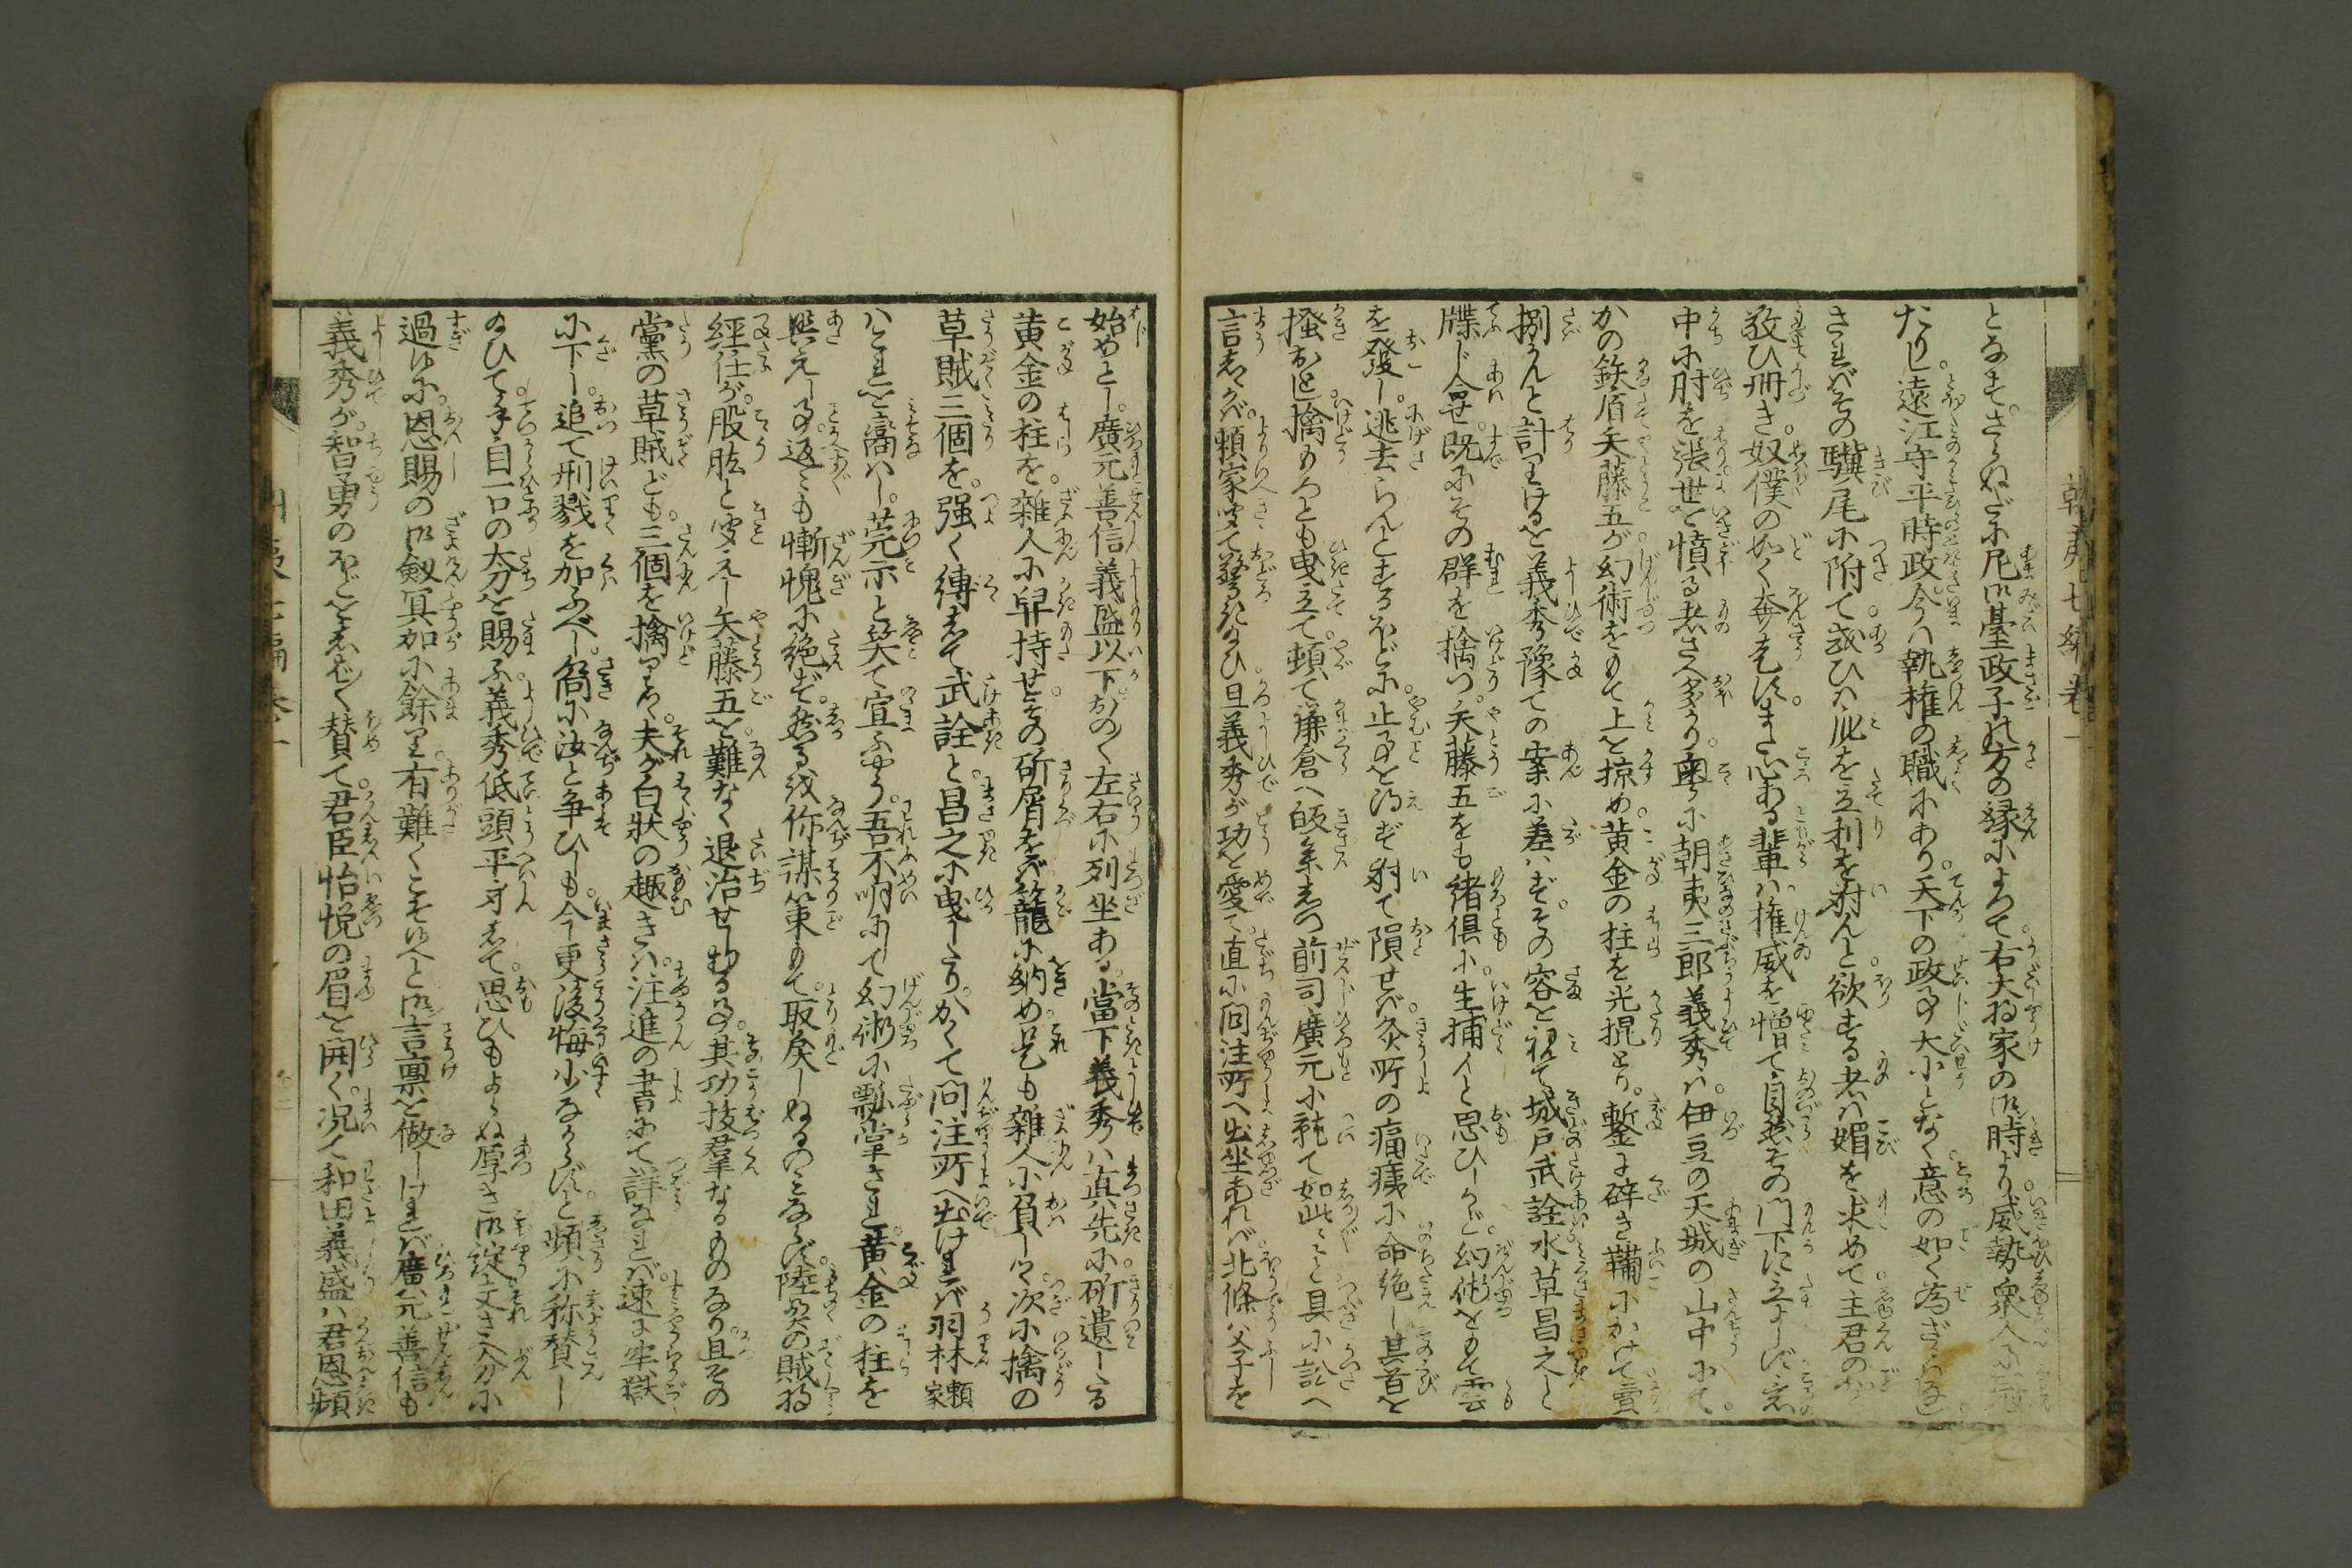 となさず。さらぬだに尼御臺政子の方の縁によつて。右大将家の御時より。威勢衆人に
たりし。遠江守平時政。今は執権の職にあり。天下の政事大小となく。意の如く為ざるはなし
されバその驥尾に附て。或ひハ庇を立利を射んと欲する者ハ。媚を求めて主君の
敬ひ冊き。奴僕の如く奔走す。また心ある輩ハ。権威を憎て自然その門下に立よらず。意
中に肘を張。世を憤る者さへ多かり。爰に朝夷三郎義秀ハ。伊豆の天城の山中にて。
かの鉄盾矢藤五が。幻術をもて上を掠め。黄金の柱を光棍とり。鏨に砕き鞴にかけて賣
捌かんと計りけるを。義秀豫ての案に差ハず。その容を視て城戸武詮水草昌之と
牒じ合せ。既にその群を擒りつ。矢藤五をも緒倶に。生捕んと思ひしかど。幻術をもて雲
を發し。逃去らんとするほどに。止事を得ず射て隕せバ。灸所の痛痍に命絶し。其首を
掻おとし。擒のものとも曳立て。頓て鎌倉へ皈参しつ。前司廣元に就て。如此々々と具に訟へ
言しかバ。頼家聞て驚き給ひ。且義秀が功を愛で。直に問注所へ出坐あれバ。北條父子を
始めとし。廣元善信義盛以下。おの〳〵左右に列坐ある。當下義秀ハ真先に。斫遺したる
黄金の柱を。雜人に舁持せ。その斫屑をバ籠に納め。是も雜人に負しつ。次に擒の
草賊三個を。强く縛して武詮と。昌之に曳したり。かくて問注所へ出けれバ。羽林頼家
ハこれを高ハし。莞尓と笑て宣ふやう。吾不明にして幻術に瓢掌され。黄金の柱を
與えし事。返々も慚愧に絶ず。然るを你謀策もて。取戻しぬるのみならず。陸奥の賊将
經任が。股肱と聞えし矢藤五を。難なく退治せしむるの。其功抜羣なるものなり。且その
黨の草賊ども。三個を擒りしハ。夫が白狀の趣きハ。注進の書にて詳なれバ。速に牢獄
に下し。追て刑戮を加ふべし。曩に汝と争ひしも。今更後悔少なからずと。頻に称賛し
給ひて。手自一口の太刀を賜ふ。義秀低頭平身して。思ひもよらぬ厚き御諚。丈き分に
過しに。恩賜の御劔冥加に餘り。有難くこそ候へと。御言稟を做しけれバ。廣元善信も
義秀が。智勇のほどを感ずく賛て。君臣怡悦の眉を開く。況て和田義盛ハ。君恩頻
朝夷七編巻一